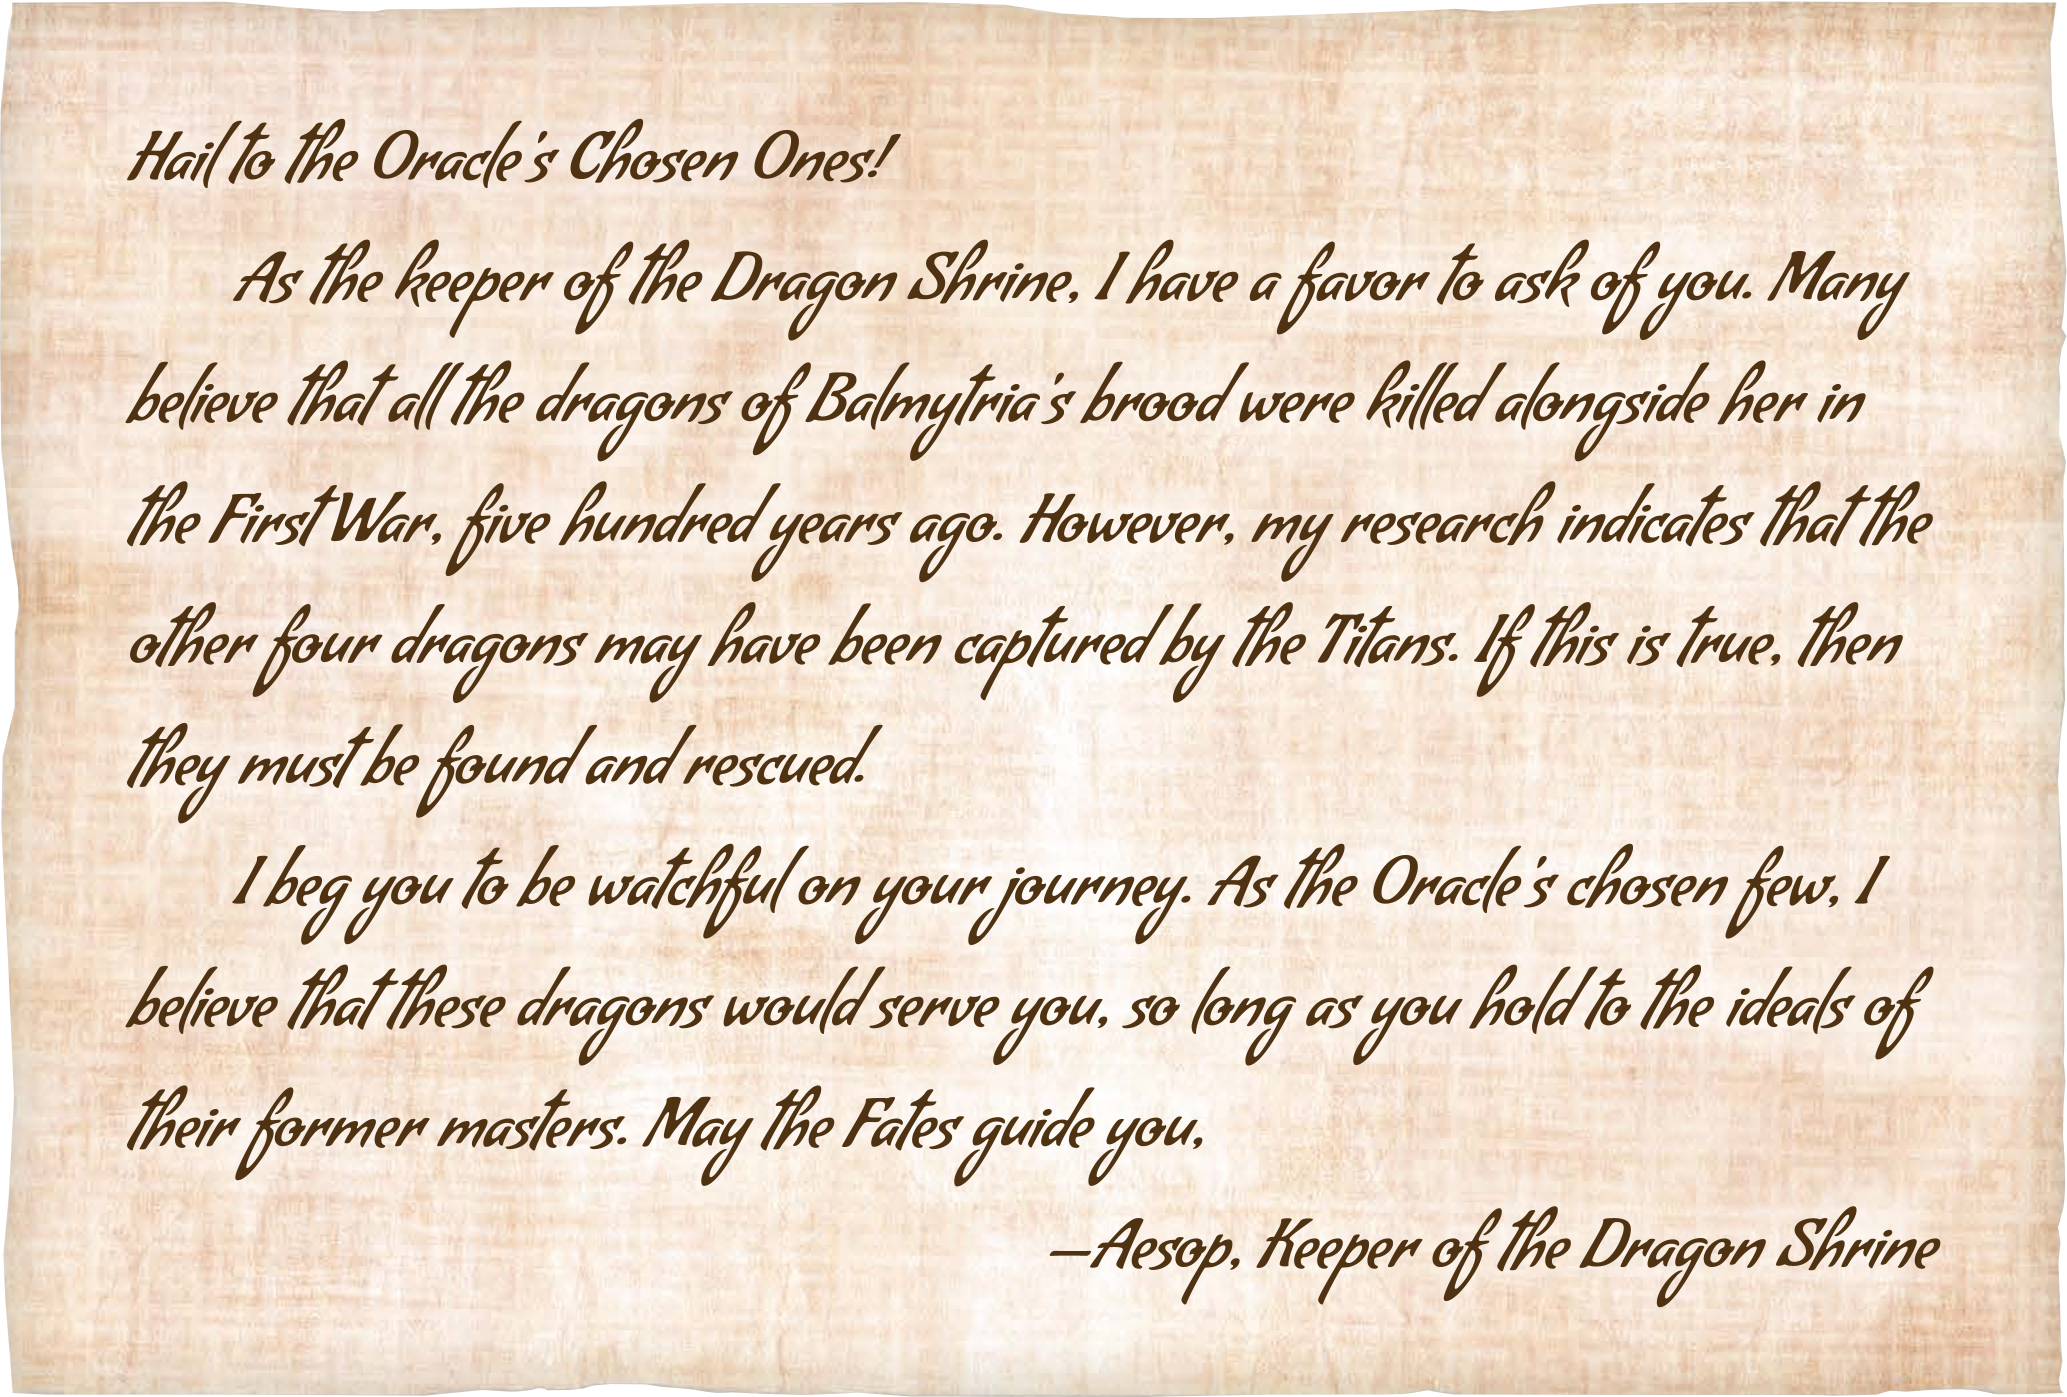 Hail to the Oracle's Chosen Ones!
As the keeper of the Dragon Shrine, I have a favor to ask of you. Many
believe that all the dragons of Balmytria's brood were killed alongside her in
the First War, five hundred years ago. However, my research indicates that the
other four dragons may have been captured by the Titans. If this is true, then
they must be found and rescued.
I beg you to be watchful on your journey. As the Oracle's chosen few, I
believe that these dragons would serve you, so long as you hold to the ideals of
their former masters. May the Fates guide you,
—Aesop, Keeper of the Dragon Shrine